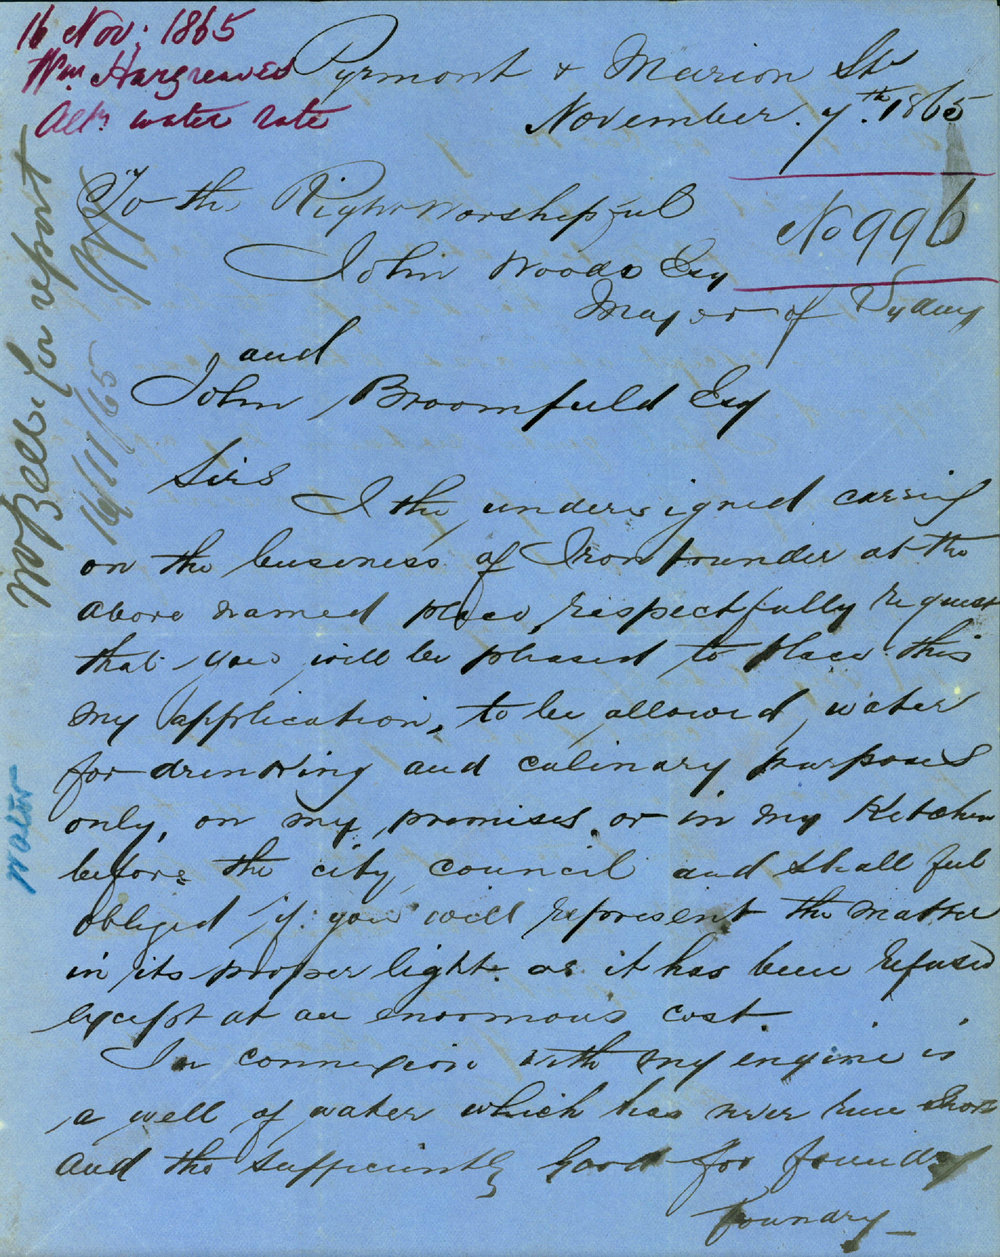 16 Nov; 1865
Wm. Hargreaves
water rate
Pyrmont & Marion Sts
November. 7th. 1865
No 996
To the Right Worshipful
John Woods Esq
Mayor of Sydney
and
John Broomfield Esq
Sirs
I the undersigned carring
on the business of Iron founder at the
above named place, respectfully request
that you will be pleased to place this
my application, to be allowed water
for drinking and culinary purposes
only, on my premises, or in my Kitchen
before the city council and shall feel
obliged if you will represent the matter
in its proper light as it has been refused
except at an enormous cost.
In connexion with my engine is
a well of water which has never run short
and tho sufficiently good for foundry
foundry
Mr Bell for report
16/11/65
Water